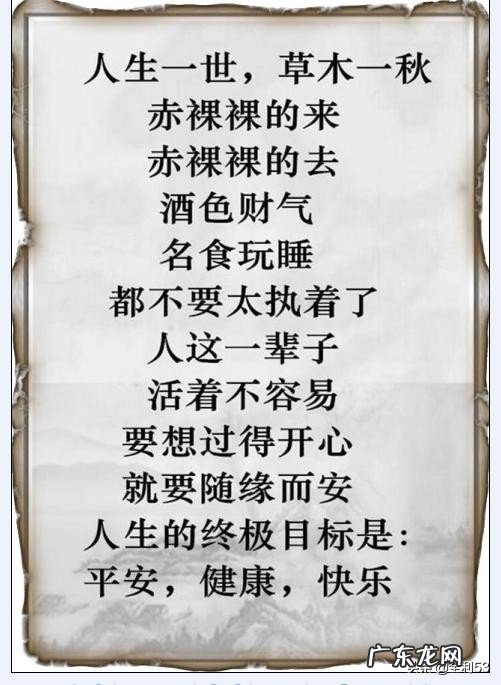 人生一世，草木一秋
赤裸裸的来
赤裸裸的去
酒色财气
名食玩睡
都不要太执着了
人这一辈子
活着不容易
要想过得开心
就要随缘而安
人生的终极目标是：
平安，健康，快乐
广东龙网